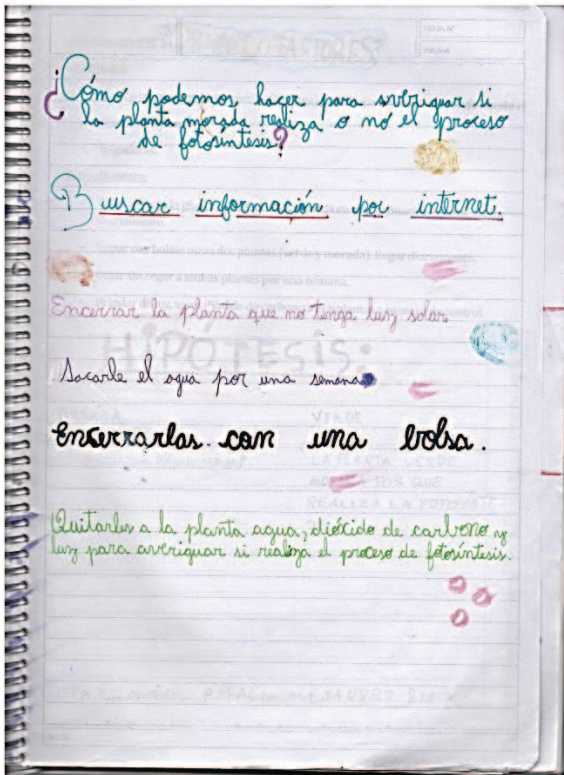 ¿Cómo podemos hacer para averiguar si
la planta morada realiza o nó el proceso
de fotosíntesis?
Buscar información por internet.
Encerrar la planta que no tenga luz solar
Sacarle el agua por una semana
Encerrarlas con una bolsa.
Quitarles a la planta agua, dióxido de carbono y
luz para averiguar si realiza el proceso de fotosíntesis.
HIPÓTESIS:
VERDE
LA PLANTA VERDE
POR QUE
REALIZA LA